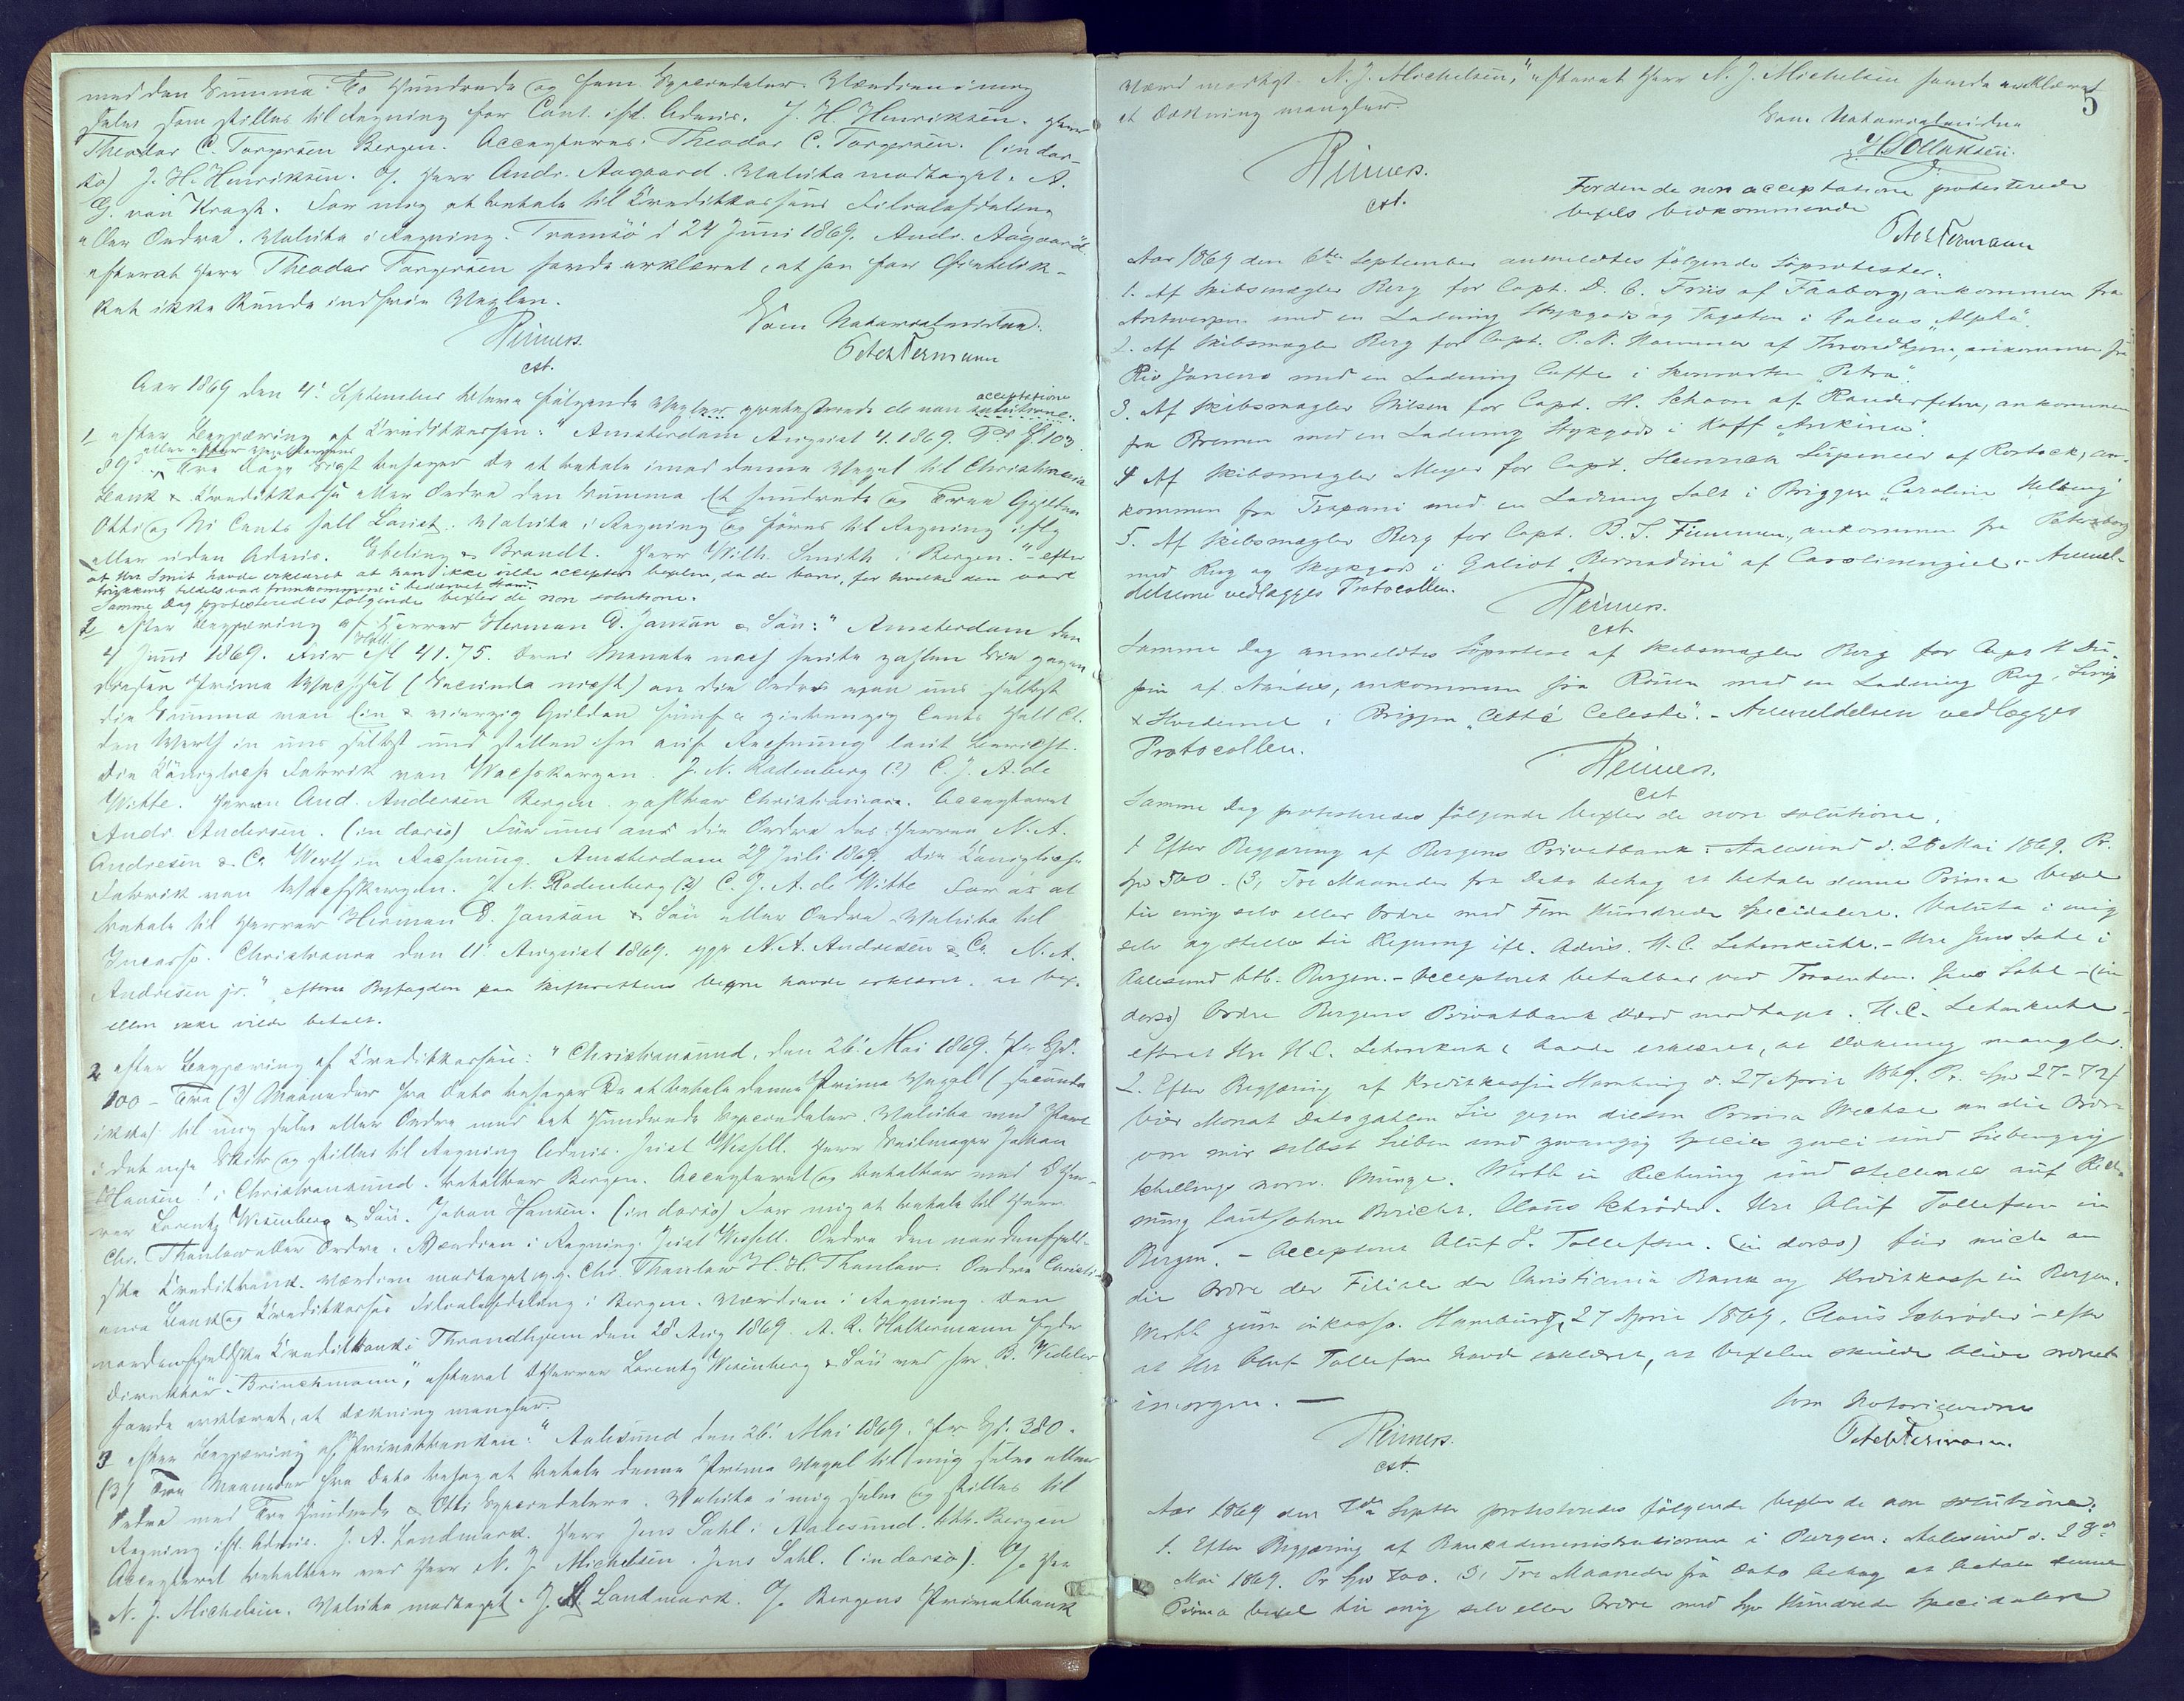 med den Summa To Hundrede og fem Speciedaler. Værdien i mig
selv som stilles til Regning for Cont. ifl. Advis. J. H. Henriksen. Herr
Theodor C. Torgersen Bergen. Accepteres: Theodor C. Torgersen. (in dor-
so) J. H. Henriksen. O/ Herr Andr. Aagaard. Valuta modtaget. A.
G. von Krogh. For mig at betale til Creditkassens Filialafdeling
eller Ordre. Valuta i Regning. Tromsö d 24 Juni 1869. Andr. Aagaard
efterat Herr Theodor Torgersen havde erklæret, at han for Øieblik-
ket ikke kunde indfrie Vexlen.
Som Notarialvidne.
Reimers.
est.
Peter Fermann
Aar 1869 den 4' September bleve følgende Vexler protesterede de non solutione.
acceptatione
1 efter Begjæring af Creditkassen: "Amsterdam August 4. 1869. Pr f 103.
89
Tre Dage Sigt behager De at betale imod denne Vexel til Christiania
Bank & Creditkasse eller Ordre den Summa Et hundrede og Tree Gylden
Otti og Ni Cents holl Court. Valuta i Regning og føres til Regning ifølg
eller uden Advis. Ebeling & Brandt. Herr Wilh. Smith i Bergen." - efter
at Hrr Smit havde erklæret at han ikke vilde acceptere vexlen, da de varer, for hvilke den var
trukken tildels var fremkommne i bedærvet Stand
Samme Dag protesteredes følgende vexler de non solutione.
2 efter Begjæring af Herrer Herman D. Janson & Søn: "Amsterdam den
4 Juni 1869. Für Holl Ct 41.75. Drei Monate nach heute zahlen Sie gegen
diesen Prima Wechsel (Secunda nicht) an die Ordre von uns selbst
die Summa von Ein & vierzig Gulden fünf & siebenzig Cents Holl Ct.
den Werth in uns selbst und stellen ihn auf Rechnung laut Bericht.
Die Königliche Fabrik von Wachskerzen. J. N. Rodenberg (?) C. J. A. de
Witte. Herrn And. Andersen Bergen. zahlbar Christiania. Accepteret
Andr Andersen. (in dorso) Für uns an die Ordre des Herren N. A.
Andresen & Co Werth in Rechnung. Amsterdam 29 Juli 1869. Die Königliche
Fabrik von Wachskerzen. J. N. Rodenberg (?) C. J. A. de Witte For os at
betale til Herrer Herman D. Janson & Søn eller Ordre. Valuta til
Incasso. Christiania den 11' August 1869. ppr N. A. Andresen & Co. N. A.
Andresen jr." efterat Byfogden paa Skifterettens vegne havde erklæret. at vex-
ellen ikke vilde betalt.
2 efter Begjæring af Creditkassen: "Christiansund, den 26' Mai 1869. Pr Spd.
100 - Tre (3) Maaneder fra Dato behager De at betale denne Prima Vexel (secunda
ikke) til mig selv eller Ordre med Et Hundrede Speciedaler. Valuta
i det nye Skib og stilles til Regning Advis. Juul Wessell. Herr Seilmager Johan
Hansen i Christiansund. betalbar Bergen. Accepteret og betalbar med D'Her-
rer Lorentz Wesenberg & Søn. Johan Hansen. (in dorso) For mig at betale til Herr
Chr. Thaulow eller Ordre. Værdien i Regning. Juul Wessell. Ordre den nordenfjeld-
ske Creditbank. Værdien modtaget. p. p. Chr. Thaulow H. H. Thaulow. Ordre Christi-
ania Bank og Creditkasses Filialafdeling i Bergen. Værdien i Regning. Den
nordenfjeldske Creditbank i Throndhjem den 28 Aug 1869. A. R. Haltermann
Direktør. Brinchmann", efterat D'Herrer Lorentz Wesenberg & Søn ved Hr. B. Vedeler
havde erklæret, at Dækning mangler.
3 efter Begjæring af Privatbanken: "Aalesund den 26' Mai 1869. Pr Spd. 380.
(3) Tre Maaneder fra Dato behag at betale denne Prima Vexel til mig selv eller
Ordre med Tre Hundrede & Otti Speciedalere. Valuta i mig selv og stilles til
Regning ifl. Advis. J. A. Landmark. Herr Jens Dahl i Aalesund. btb. Bergen
Accepteret betalbar ved Herr N. J. Michelsen. Jens Dahl. (in dorso). O/ Hr
N. J. Michelsen. Valuta modtaget. J. A. Landmark. O/ Bergens Privatbank
5
Værd modtagt. N. J. Michelsen", efterat Herr N. J. Michelsen havde erklæret
at Dækning mangler.
Som Notarialvidne
Reimers.
est.
H Tollaksen.
For den de non acceptatione protesterede
vexels vedkommende
Peter Fermann
Aar 1869 den 6te September anmeldtes følgende Søprotester.
1. Af Skibsmægler Berg for Capt. D. C. Friis af Faaborg, ankommen fra
Antwerpen med en Ladning Stykgods og Tagsten i Galeas "Alpha".
2. Af Skibsmægler Berg for Capt. P. N. Hammer af Throndhjem, ankommen fra
Rio Janeiro med en Ladning Caffe i Skonnerten "Petra".
3. Af Skibsmægler Nilsen for Capt. H. Schoon af Randerfehn, ankommen
fra Bremen med en Ladning Stykgods i Koff "Ankina".
4 Af Skibsmægler Meyer for Capt. Heinrich Lüpcnier af Rostock, an-
kommen fra Trapani med en Ladning Salt i Briggen "Caroline Helberg"
5. Af Skibsmægler Berg for Capt. B. J. Fimmen, ankommen fra Petersborg
med Rug og Stykgods i Galiot "Bernadine" af Carolinenziel. - Anmel-
delserne vedlægges Protocollen.
Reimers.
est.
Samme Dag anmeldtes Søprotest af Skibsmægler Berg for Capt H Du-
pin af Nantes, ankommen fra Rouen med en Ladning Rug, Sirup
& Hvedemel i Briggen "Cétté Celeste". - Anmeldelsen vedlægges
Protocollen.
Reimers.
est
Samme Dag protesteredes følgende Vexler de non solutione.
1 Efter Begjæring af Bergens Privatbank: Aalesund d. 28 Mai 1869. Pr.
Spd 500. (3) Tre Maaneder fra Dato behag at betale denne Prima Vexel
til mig selv eller Ordre med Fem Hundrede Speciedalere. Valuta i mig
selv og stilles til Regning ifl. Advis. H. C. Lehmkuhl. - Hrr Jens Dahl i
Aalesund btb. Bergen. - Accepteret betalbar ved Trassenten. Jens Dahl - (in
dorso) Ordre Bergens Privatbank Værd modtaget. H. C. Lehmkuhl -
efterat Hrr H. C. Lehmkuhl havde erklæret, at Dækning mangler.
2. Efter Begjæring af Kreditkassen Hamburg d. 27 April 1869. Pr. Spd 27-72ß
Vier Monat Dato zahlen Sie gegen diesen Prima Wechsel an die Ordre
von mir selbst Sieben und zwanzig Species zwei und siebenzig
Schillinge norw. Münze. Werth in Rechnung und stellen es auf Rech-
nung laut/ohne Bericht. Claus Schröder. Hrr Oluf Tollefsen in
Bergen. - Accepteret Oluf J. Tollefsen. (in dorso) für mich an
die Ordre der Filiale der Christiania Bank og Kreditkasse in Bergen.
Werth zum inkasso. Hamburg, 27 April 1869. Claus Schröder - efter
at Hrr Oluf Tollefsen havde erklæret, at Vexelen skulde blive ordnet
imorgen. -
Som Notarialvidne
Reimers.
est.
Peter Fermann.
Aar 1869 den 7de Septbr protesteredes følgende vexler de non solutione:
1. Efter Begjæring af Bankadministrationen i Bergen: Aalesund d. 28de
Mai 1869. Pr Spd 700. (3) Tre Maaneder fra Dato behag at betale denne
Prima Vexel til mig selv eller Ordre med Syv Hundrede Speciedalere